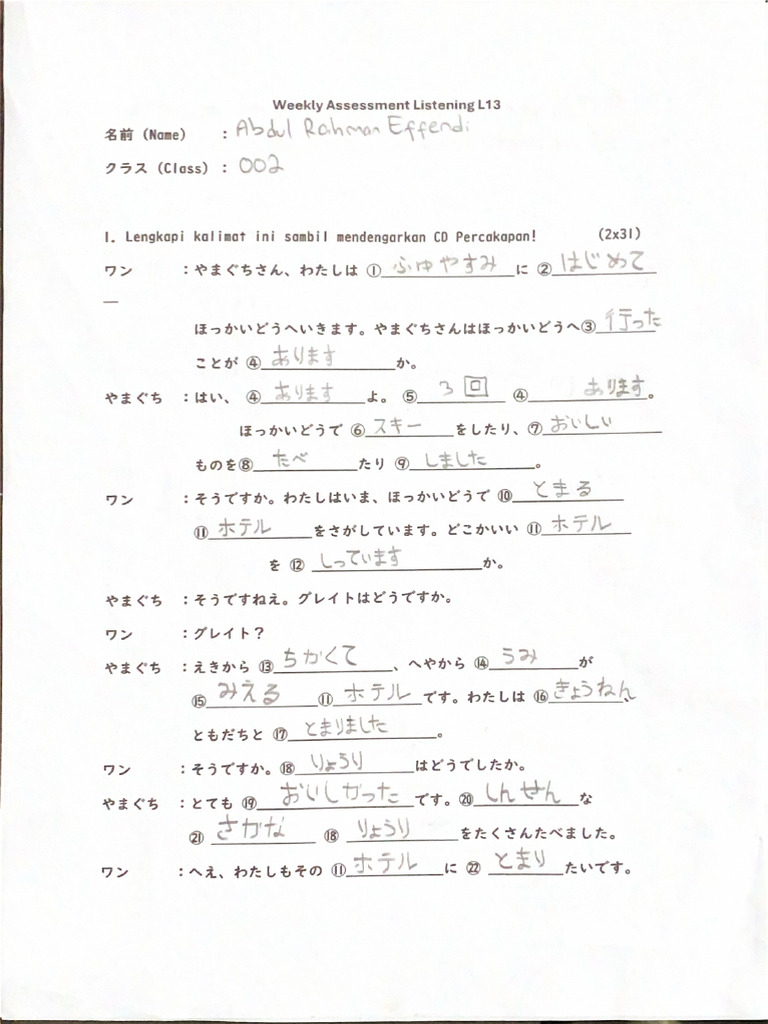 Weekly Assessment Listening L13
名前 (Name) : Abdul Rahman Effendi
クラス (Class) : 002
I. Lengkapi kalimat ini sambil mendengarkan CD Percakapan! (2x31)
ワン :やまぐちさん、わたしは ①ふゆやすみに ②はじめて
ほっかいどうへいきます。やまぐちさんはほっかいどうへ③行った
ことが ④ありますか。
やまぐち :はい、 ④ありますよ。 ⑤3回 ④あります。
ほっかいどうで ⑥スキーをしたり、⑦おいしい
ものを⑧たべたり ⑨しました。
ワン :そうですか。わたしはいま、ほっかいどうで ⑩とまる
⑪ホテルをさがしています。どこかいい ⑪ホテル
を ⑫しっていますか。
やまぐち :そうですねえ。グレイトはどうですか。
ワン :グレイト?
やまぐち :えきから ⑬ちかくて、へやから ⑭うみが
⑮みえる ⑪ホテルです。わたしは ⑯きょうねん、
ともだちと ⑰とまりました。
ワン :そうですか。⑱りょうりはどうでしたか。
やまぐち :とても ⑲おいしかったです。⑳しんせんな
㉑さかな ⑱りょうりをたくさんたべました。
ワン :へえ、わたしもその ⑪ホテルに ㉒とまりたいです。